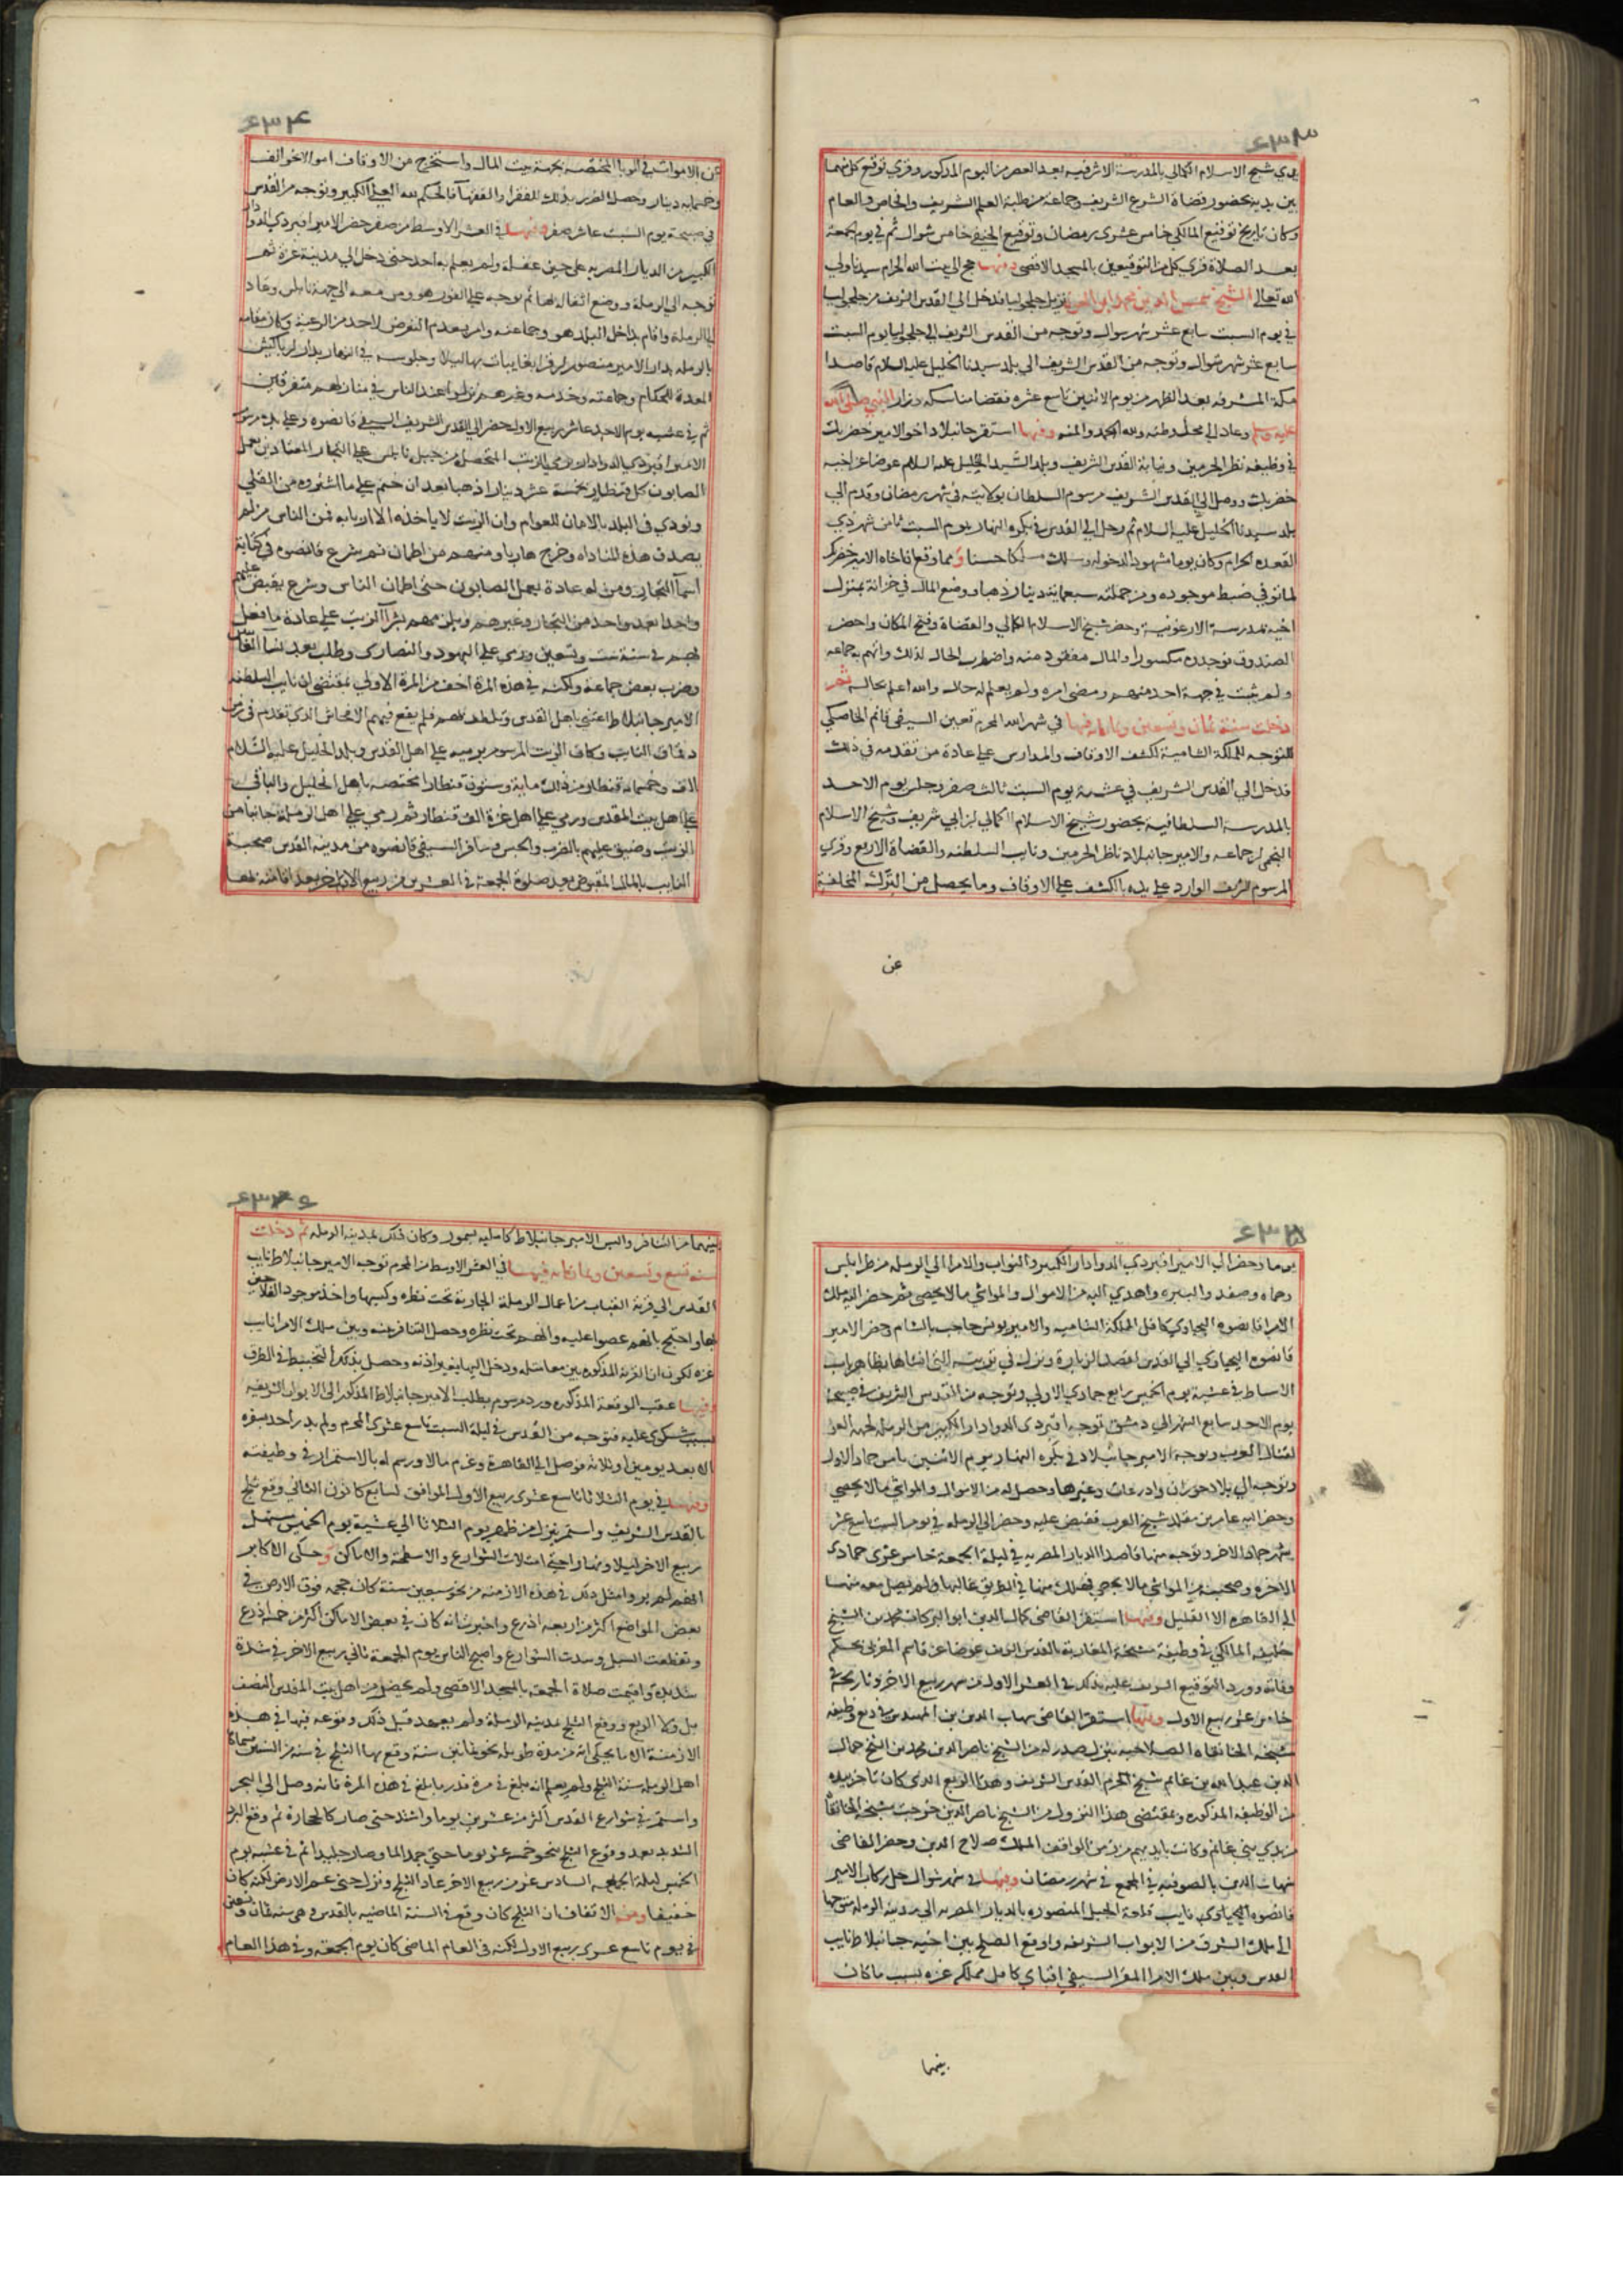 يدي شيخ الاسلام الكمالي بالمدرسة الاشرفيه بعد العصر من اليوم المذكور وقري توقيع كل منهما
بين يديه بحضور قضاة الشرع الشريف وجماعة من طلبة العلم الشريف والخاص والعام
وكان تاريخ توقيع المالكي خامس عشرى رمضان وتوقيع الحنفي خامس شوال ثم في يوم الجمعة
بعد الصلاة قري كل من التوقيعين بالمسجد الاقصى وفيها حج الى بيت الله الحرام سيدنا ولي
الله تعالى الشيخ شمس الدين محمد ابن نزيل جلجوليا فدخل الى القدس الشريف من جلجوليا
في يوم السبت سابع عشر شهر شوال وتوجه من القدس الشريف الى جلجوليا يوم السبت
سابع عشر شهر شوال وتوجه من القدس الشريف الي بلد سيدنا الخليل عليه السلام قاصدا
مكة المشرفه بعد الظهر من يوم الاثنين تاسع عشره فقضا مناسكه وزار النبي صلى الله
عليه وسلم وعاد الى محل وطنه ولله الحمد والمنه وفيها استقر جانبلاد اخو الامير خضر بك
في وظيفه نظر الحرمين ونيابة القدس الشريف وبلد السيد الخليل عليه السلام عوضا عن اخيه
خضر بك ووصل الى القدس الشريف مرسوم السلطان بولايته في شهر رمضان وقدم الي
بلد سيدنا الخليل عليه السلام ثم رحل الى القدس في بكرة النهار يوم السبت ثامن شهر ذي
القعده الحرام وكان يوما مشهودا لدخوله وسلك مسلكا حسنا ومما وقع ان اخاه الامير خضر بك
لما توفي ضبط موجوده ومن جملته سبعماية دينار ذهبا ووضع المال في خزانة بمنزل
اخيه بمدرسة الارغونية وحضر شيخ الاسلام الكمالي والقضاة وفتح المكان واحضر
الصندوق فوجده مكسورا والمال مفقود منه واضطرب الحال لذلك واتهم به جماعه
ولم يثبت في جهة احد منهم ومضى امره ولم يعلم له حال والله اعلم بحاله ثم
دخلت سنة ثمان وتسعين وثمانمايه فيها في شهر الله المحرم تعين السيفي قانم الخاصكي
للتوجه للمملكة الشامية لكشف الاوقاف والمدارس على عادة من تقدمه في ذلك
فدخل الى القدس الشريف في عشية يوم السبت ثالث صفر وجلس يوم الاحد
بالمدرسة السلطانية بحضور شيخ الاسلام الكمالي ابن ابي شريف وشيخ الاسلام
النجمي ابن جماعه والامير جانبلاد ناظر الحرمين ونايب السلطنه والقضاة الاربع وقري
المرسوم الشريف الوارد على يده بالكشف على الاوقاف وما يحصل من الترك المخلفة
عن
عن الاموات في الوبا المختصه بجهة بيت المال واستخرج من الاوقاف اموالا نحو الف
وخمسمايه دينار وحصل الضرر بذلك للفقرا والفقها فالحكم لله العلي الكبير وتوجه من القدس
في صبيحة يوم السبت عاشر صفر وفيها في العشر الاوسط من صفر حضر الامير اقبردي الدوادار
الكبير من الديار المصريه على حين غفلة ولم يعلم به احد حتى دخل الي مدينة غزة ثم
توجه الى الرملة ووضع اثقاله بها ثم توجه على الفور هو ومن معه الى جهة نابلس وعاد
الى الرملة واقام بداخل البلد هو وجماعته وامر بعدم التعرض لاحد من الرعية وكان مقامه
بالرمله بدار الامير منصور ابن قرابغا يبات بها ليلا وجلوسه في النهار بدار ابن باكيش
المعدة للحكام وجماعته وخدمه وغيرهم نزلوا عند الناس في منازلهم متفرقين
ثم في عشيه يوم الاحد عاشر ربيع الاول حضر الى القدس الشريف السيفي قانصوه وعلى يده مرسوم
الامير اقبردي الدوادار برمي الزيت المتحصل من جبل نابلس على التجار المعتادين بعمل
الصابون كل قنطار بخمسة عشر دينارا ذهبا بعد ان ختم على ما اشتروه من القلي
ونودي في البلد بالامان للعوام وان الزيت لا ياخذه الا اربابه فمن الناس من لم
يصدق هذه المناداه وخرج هاربا ومنهم من اطمان ثم شرع قانصوه في كتابة
اسما التجار ومن له عادة بعمل الصابون حتى اطمان الناس وشرع يقبض عليهم
واحدا بعد واحد من التجار وغيرهم ويلزمهم بشرا الزيت على عادة ما فعل
بهم في سنة ست وتسعين ورمى على اليهود والنصارى وطلب بعد
وضرب بعض جماعة ولكنه في هذه المرة اخف من المرة الاولي بمقتضى ان نايب السلطنه
الامير جانبلاط اعتنى باهل القدس وتلطف بهم فلم يقع فيهم الافحاش الذي تقدم في زمن
دقماق النايب وكان الزيت المرسوم برميه على اهل القدس وبلد الخليل عليه السلام
الف وخمسماية قنطار من ذلك ماية وستون قنطارا مختصه باهل الخليل والباقي
على اهل بيت المقدس ورمي على اهل غزة الف قنطار ثم رمي على اهل الرملة جانبا من
الزيت وضيق عليهم بالضرب والحبس وسافر السيفي قانصوه من مدينه القدس صحبة
النايب بالمال المقبوض بعد صلوة الجمعة في العشرين من ربيع الاخر بعد اقامته بها
يوما وحضر الى الامير اقبردي الدوادار الكبير والنواب والامرا الى الرمله من طرابلس
وحماه وصفد والبيره واهدي اليه من الاموال والمواشي مالا يحصى ثم حضر اليه ملك
الامرا قانصوه اليحياوي كافل المملكة الشاميه والامير يونس حاجب بالشام وحضر الامير
قانصوه اليحياوي الى القدس لقصد الزيارة ونزل في تربته التي انشاها بظاهر باب
الاسباط في عشية يوم الخميس رابع جمادي الاولي وتوجه من القدس الشريف في صبيحة
يوم الاحد سابع الشهر الي دمشق ثم توجه اقبردي الدوادار الكبير من الرملة لجهة الغور
لقتال العرب وتوجه الامير جانبلاد في بكرة النهار يوم الاثنين ثامن جماد الاول
وتوجه الى بلاد حوران واذرعات وغيرها وحصل له من الاموال والمواشي مالا يحصي
وحضر اليه عامر بن مقلد شيخ العرب فقبض عليه وحضر الى الرمله في يوم السبت تاسع عشر
شهر جماد الاخر وتوجه منها قاصدا الديار المصريه في ليلة الجمعة خامس عشرى جمادى
الاخره وصحبته من المواشي مالا يحصي فهلك منها في الطريق غالبها ولم يصل معه منها
الى القاهرة الا القليل وفيها استقر القاضي كمال الدين ابو البركات محمد بن الشيخ
خليفه المالكي في وظيفة مشيخة المغاربة بالقدس الشريف عوضا عن قاسم المغربي بحكم
وفاته وورد التوقيع الشريف عليه بذلك في العشر الاول من شهر ربيع الاخر وتاريخه في
خامس عشر ربيع الاول وفيها استقر القاضي شهاب الدين بن المهندس في ربع وظيفه
مشيخه الخانقاه الصلاحيه بنزول صدر له من الشيخ ناصر الدين محمد بن الشيخ جمال
الدين عبد الله بن غانم شيخ الحرم القدس الشريف وهذا الربع الذي كان تاخر بيده
من الوظيفه المذكوره وبمقتضى هذا النزول من الشيخ ناصر الدين خرجت مشيخة الخانقاه
من يدي بني غانم وكانت بايديهم من زمن الواقف الملك صلاح الدين وحضر القاضي
شهاب الدين بالصوفيه في المجمع في شهر رمضان وفيها في شهر شوال حل ركاب الامير
قانصوه اليحياوي نايب قلعة الجبل المنصوره بالديار المصريه الي مدينة الرمله متوجها
الى ملك الشرق من الابواب الشريفه واوقع الصلح بين اخيه جانبلاط نايب
القدس وبين ملك الامرا المقر السيفي اقباي كافل مملكه غزه بسبب ما كان
بينهما
بينهما من التنافر والبس الامير جانبلاط كامليه بسمور وكان ذلك بمدينه الرمله ثم دخلت
سنه تسع وتسعين وثمانمايه فيها في العشر الاوسط من المحرم توجه الامير جانبلاط نايب
القدس الى قرية القباب من اعمال الرملة الجارية تحت نظره وكبسها واخذ موجود الفلاحين
بها واحتج بانهم عصوا عليه وانهم تحت نظره وحصل التنافر بينه وبين ملك الامرا نايب
غزه لكون ان القرية المذكوره من معاملته ودخل اليها بغير اذنه وحصل بذلك التخبيط في الطرق
وفيها عقب الوقعة المذكوره ورد مرسوم بطلب الامير جانبلاط المذكور الى الابواب الشريفه
بسبب شكوى عليه فتوجه من القدس في ليلة السبت تاسع عشرى المحرم ولم يدر احد بسفره
الا بعد يومين او ثلاثه فوصل الى القاهرة وغرم مالا ورسم له بالاستمرار في وظيفته
وفيها في يوم الثلاثا تاسع عشرى ربيع الاول الموافق لسابع كانون الثاني وقع ثلج
بالقدس الشريف واستمر ينزل من ظهر يوم الثلاثا الي عشية يوم الخميس مستهل
ربيع الاخر ليلا ونهارا حتى امتلات الشوارع والاسطحة والاماكن وحكى الاكابر
انهم لم يروا مثل ذلك في هذه الازمنه من نحو سبعين سنة كان حجمه فوق الارض في
بعض المواضع اكثر من اربعه اذرع واخبرت انه كان في بعض الاماكن اكثر من خمسة اذرع
وتقطعت السبل وسدت الشوارع واصبح الناس يوم الجمعة ثاني ربيع الاخر في شدة
شديده واقيمت صلاة الجمعه بالمسجد الاقصى ولم يحضر من اهل بيت المقدس النصف
بل ولا الربع ووقع الثلج بمدينه الرملة ولم يعهد قبل ذلك وقوعه فيها في هذه
الازمنة الا ما يحكى انه من مدة طويله نحو ثمانين سنة وقع بها الثلج في سنه من السنين سماها
اهل الرملة سنة الثلج ولم يعلم انه بلغ في مرة قدر ما بلغ في هذه المرة فانه وصل الى البحر
واستمر في شوارع القدس اكثر من عشرين يوما واشتد حتى صار كالحجارة ثم وقع البرد
الشديد بعد وقوع الثلج بنحو خمسة عشر يوما حتى جمد الما وصار جليدا ثم في عشيه يوم
الخميس ليلة الجمعه السادس عشر من ربيع الاخر عاد الثلج ونزل حتى عم الارض لكنه كان
خفيفا ومن الاتفاق ان الثلج كان وقع في السنة الماضيه بالقدس وهي سنه ثمان وتسعين
في يوم تاسع عشرى ربيع الاول لكنه في العام الماضي كان يوم الجمعه وفي هذا العام